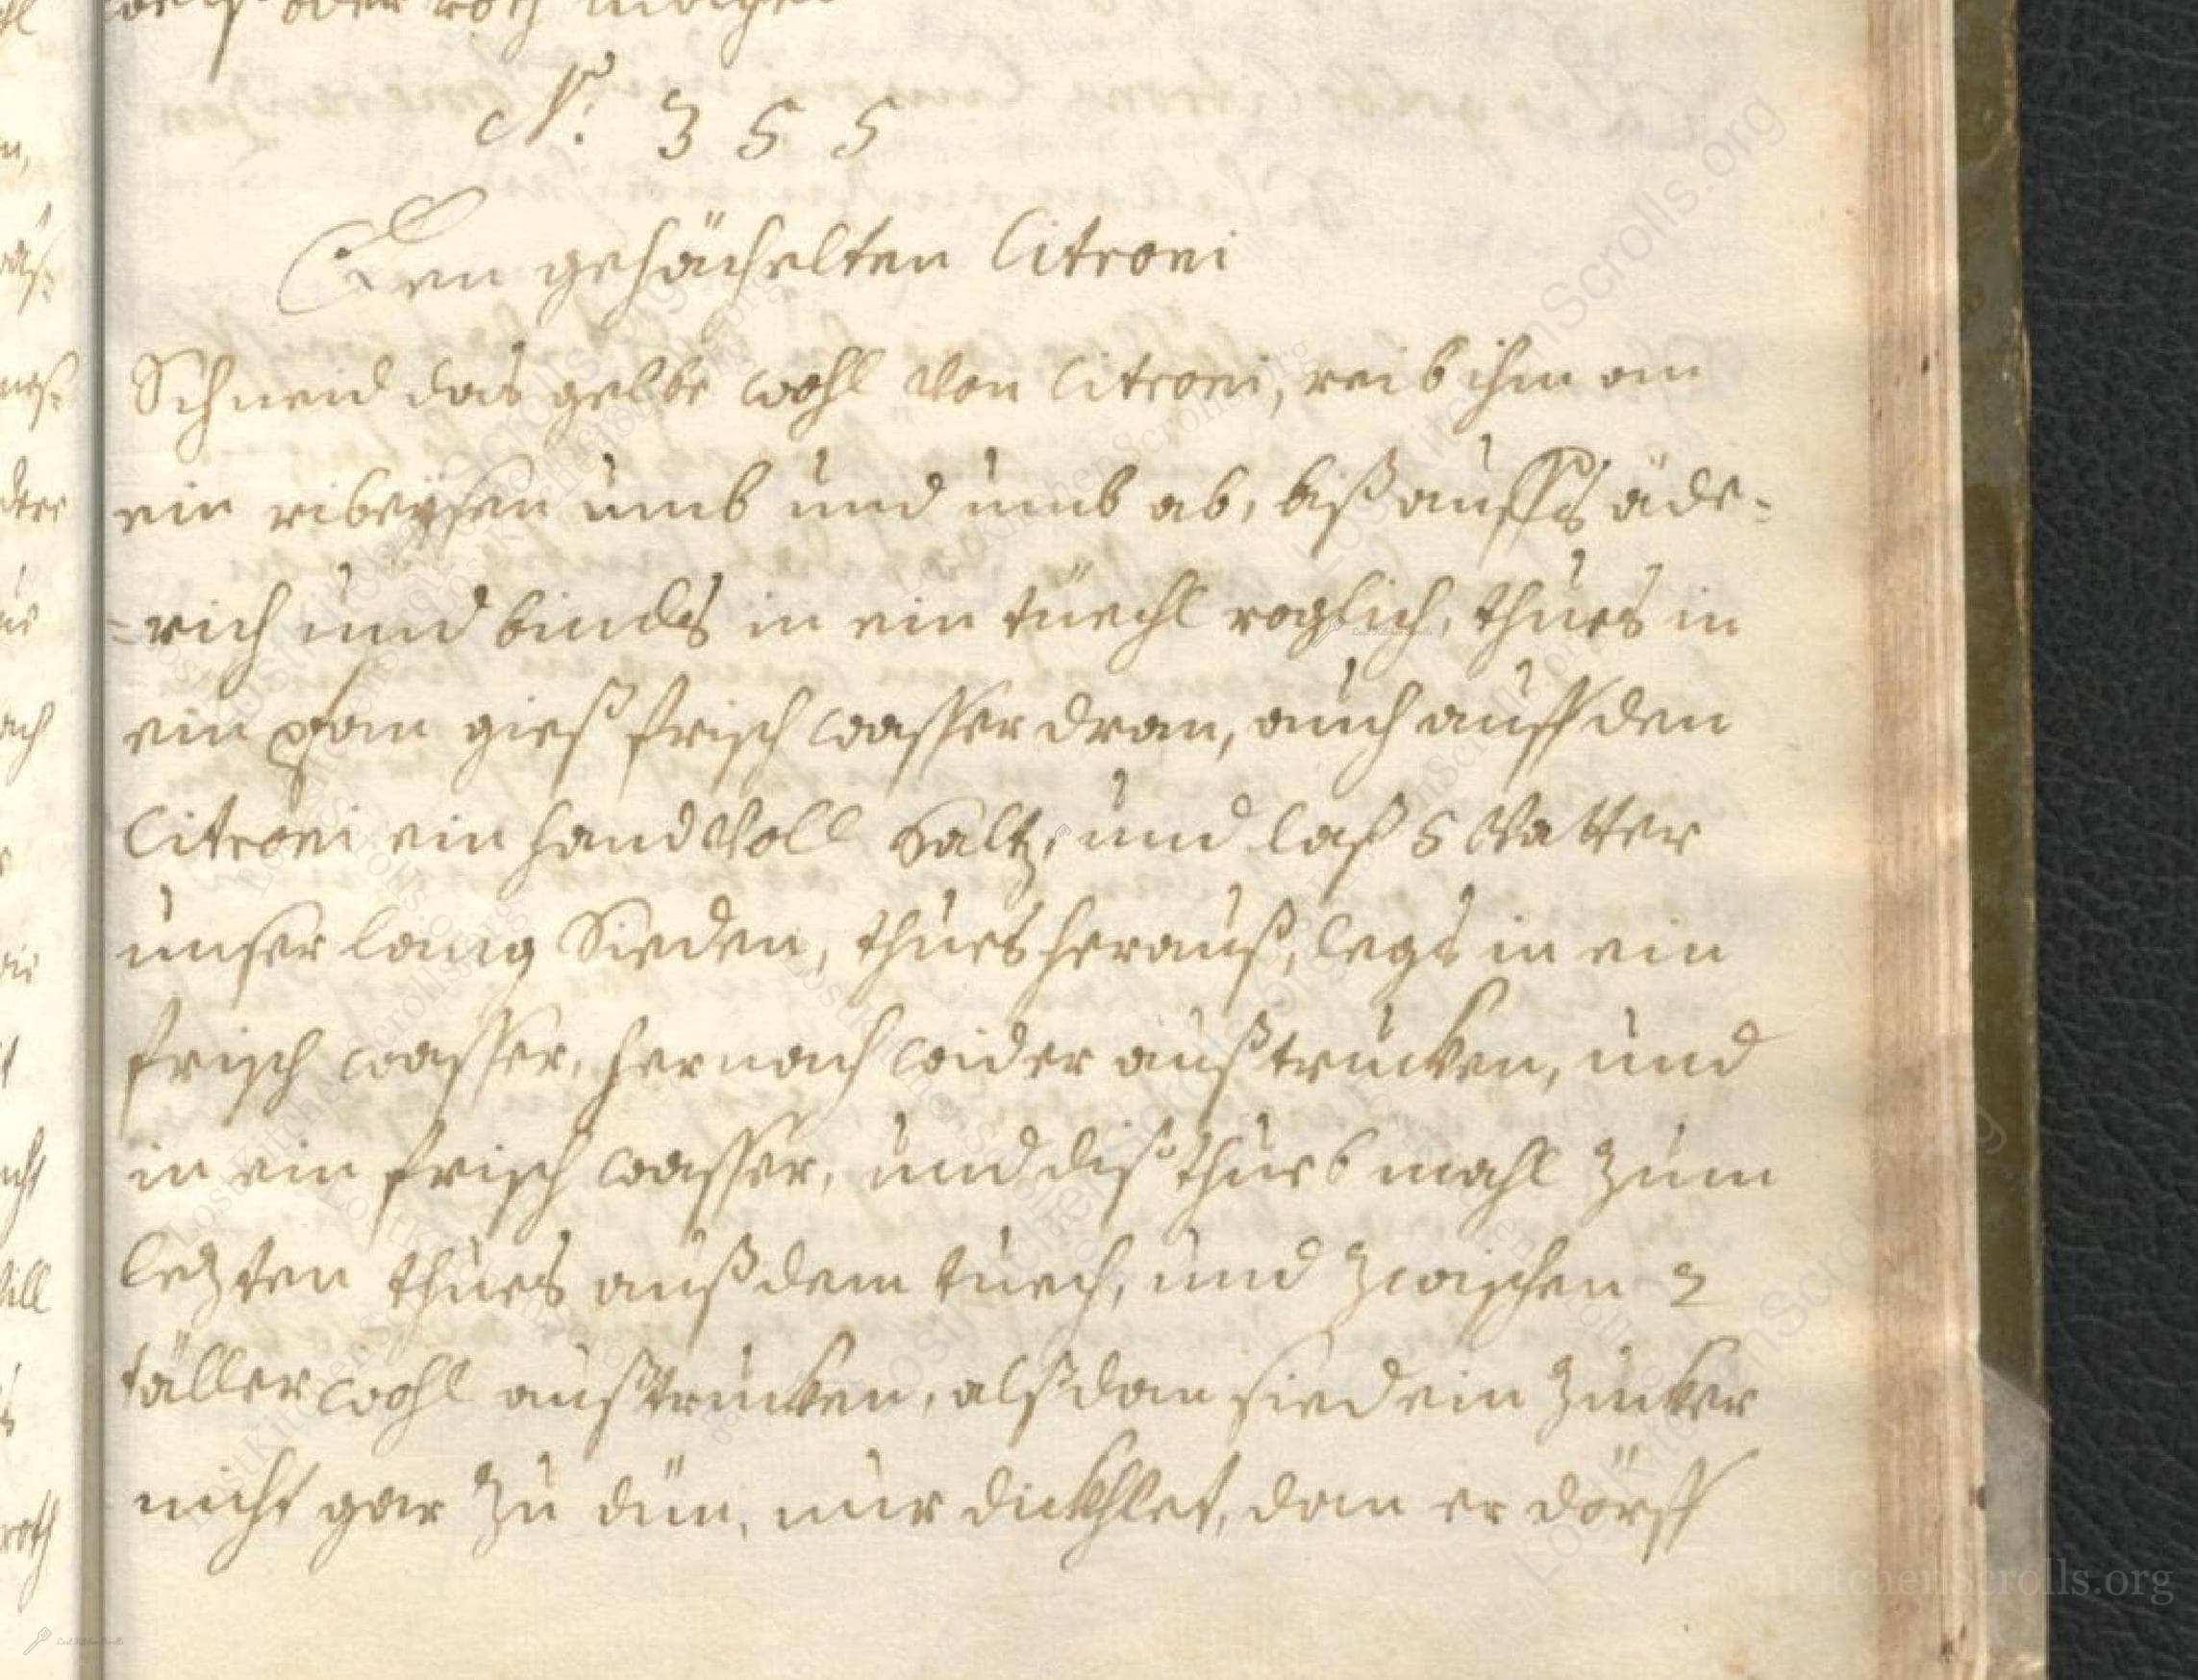 weiß oder roth machen
N: 355
Den gehächelten Citroni
Schneid das gelbe wohl von Citroni, reib ihm on
ein ribeysen umb und umb ab, biß auffs äde-
-rich und binds in ein tüechl roglich, thues in
ein pfan gieß frisch wasser dran, auch auff den
Citroni ein handvoll Saltz, und laß 5 Vatter
unser lang Sieden, thues herauß, legs in ein
frisch wasser, hernach wider außtrucken, und
in ein frisch wasser, und diß thue 6 mahl zum
lezten thues auß dem tuech, und zwischen 2
täller wohl außtrucken, alßdan sied ein Zucker
nicht gar zu dün, nur dickhlet, dan er dörff
LostKitchenScrolls.org